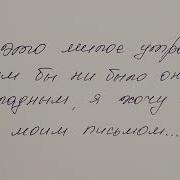 это милое утро
м бы ни было он
ладным, я хочу
моим письмом...